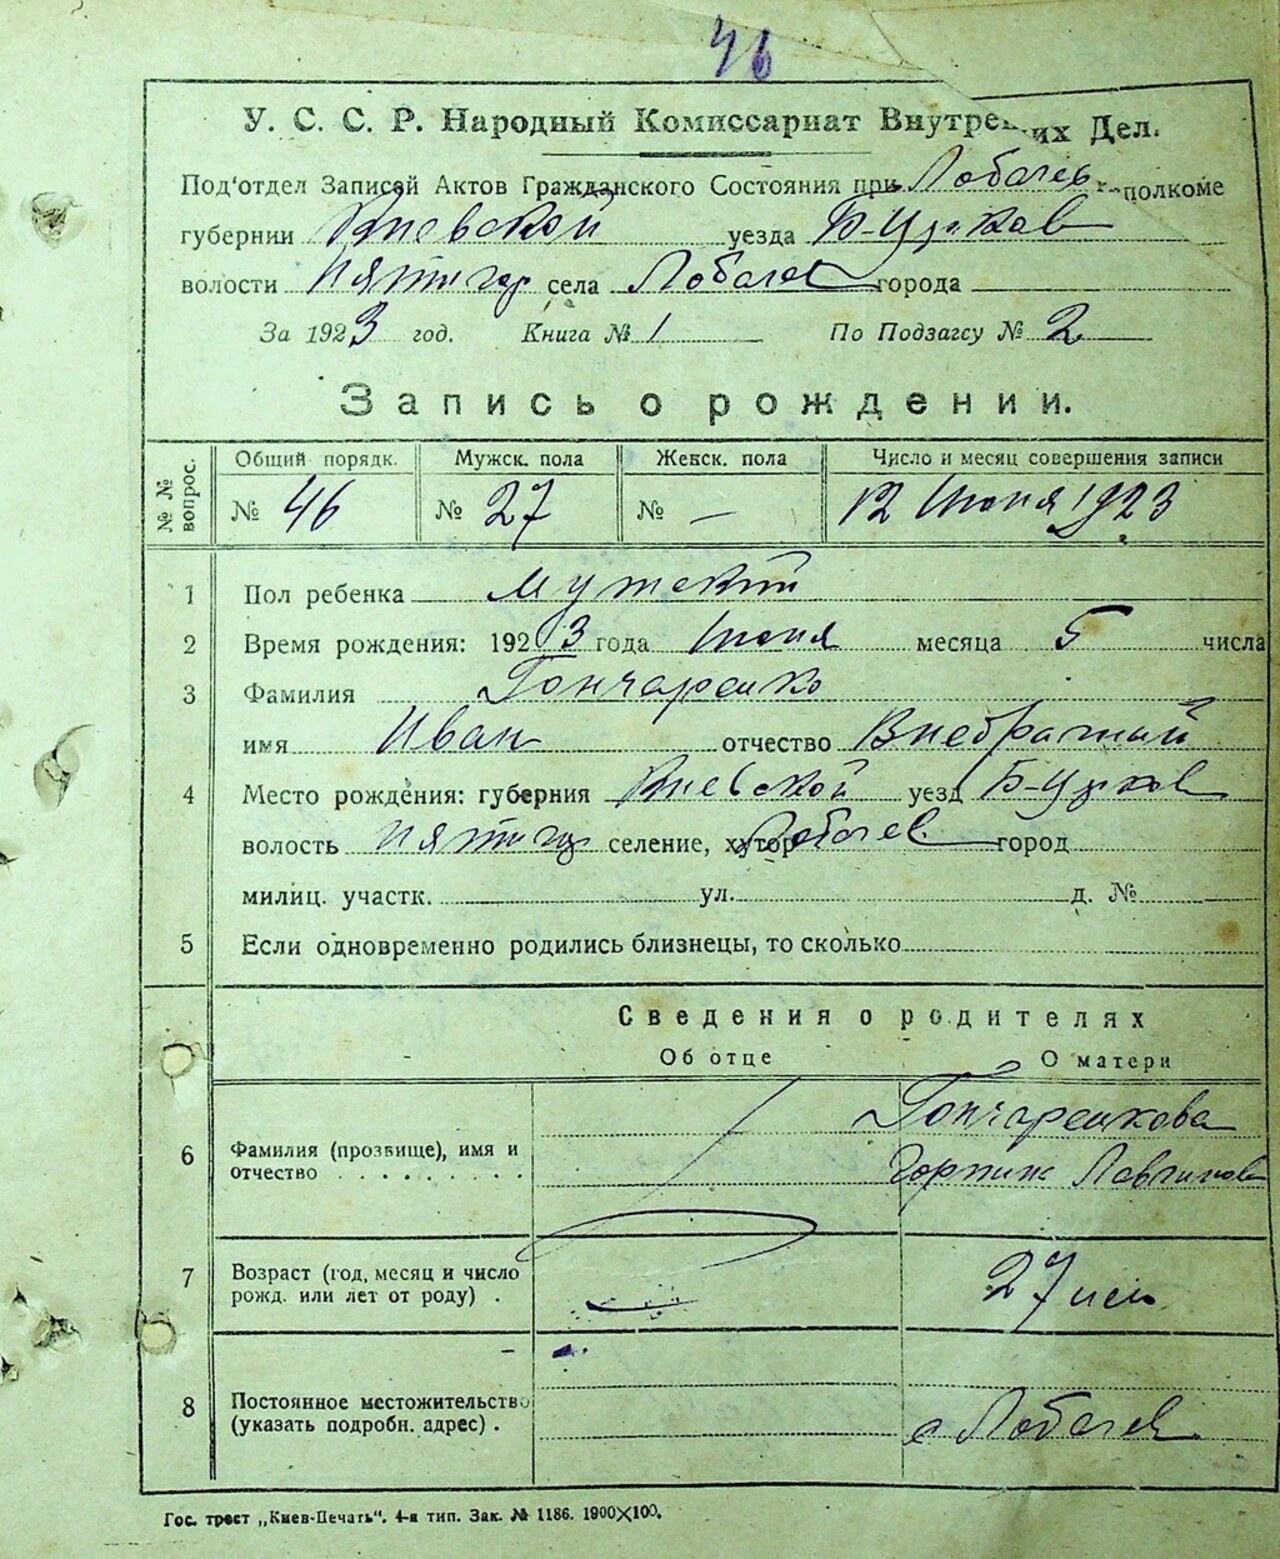 46
У. С. С. Р. Народный Комиссариат Внутре их Дел.
Под'отдел Записей Актов Гражданского Состояния при Лобачев полкоме
губернии Киевской уезда Б-Церков
волости Пятигор села Лобачев города
За 1923 год. Книга № 1 По Подзагсу № 2
Запись о рождении.
№ № вопрос. Общий порядк. Мужск. пола Женск. пола Число и месяц совершения записи
№ 46 № 27 № — 12 Июня 1923
1 Пол ребенка Мужский
2 Время рождения: 1923 года Июня месяца 5 числа
3 Фамилия Гончаренко
имя Иван отчество Внебрачный
4 Место рождения: губерния Киевской уезд Б-Церков
волость Пятигор селение, хутор Лобачев город
милиц. участк. ул. д. №
5 Если одновременно родились близнецы, то сколько
Сведения о родителях
Об отце О матери
Гончаренкова
6 Фамилия (прозвище), имя и
отчество Горпина
7 Возраст (год, месяц и число
рожд. или лет от роду) . 27
8 Постоянное местожительство
(указать подробн. адрес) . с Лобачев
Гос. трест „Киев-Печать". 4-я тип. Зак. № 1186. 1900×100.